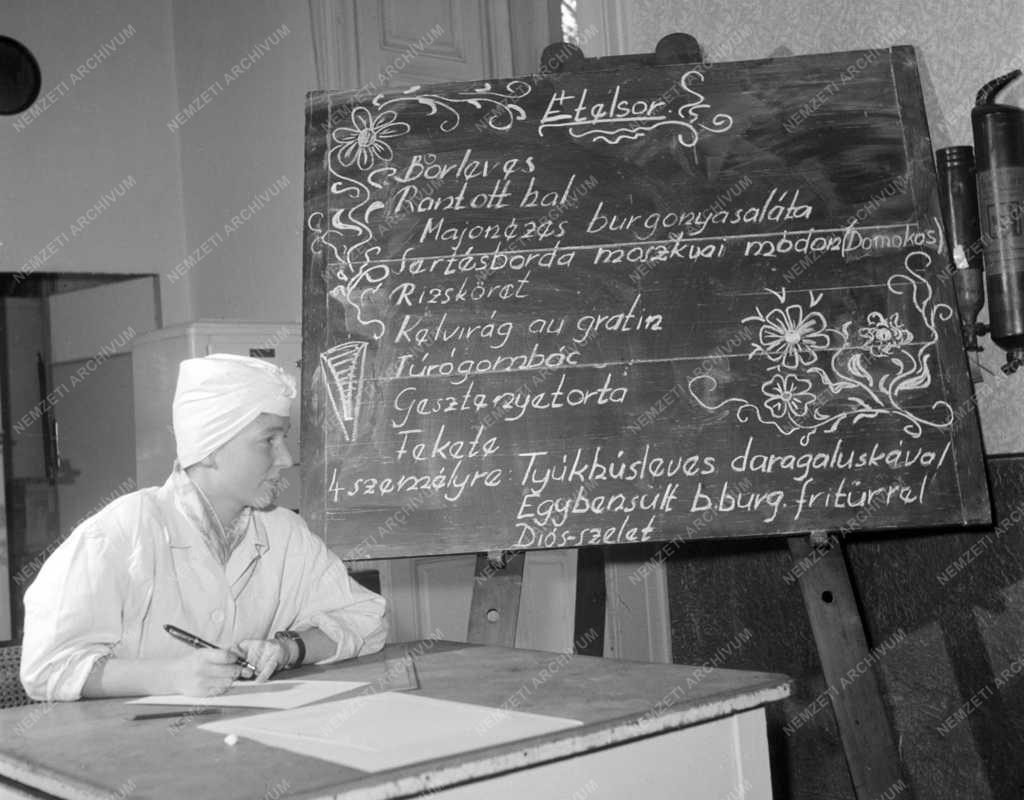 Étélsor.
Börleves
Rántott hal
Majonézes burgonyasaláta
Sertésborda moszkvai módon (Domokos)
Rizsköret
Kelvirág au gratin
Túrógombóc
Gesztenyetorta
Fekete
4 személyre: Tyúkhúsleves daragaluskával
Egybensült b.burg. fritürrel
Diós-szelet
NEMZETI ARCHÍVUM